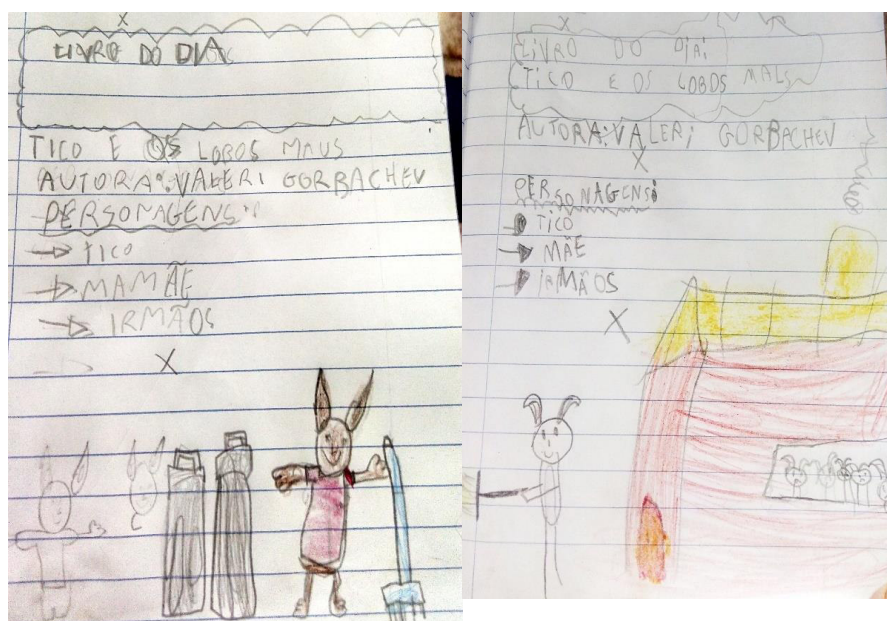 LIVRO DO DIA
TICO E OS LOBOS MAUS
AUTORA: VALERI GORBACHEV
PERSONAGENS:
TICO
MAMÃE
IRMÃOS
LIVRO DO DIA:
TICO E OS LOBOS MALS
AUTORA: VALERI GORBACHEV
PERSONAGENS:
TICO
MÃE
IRMÃOS